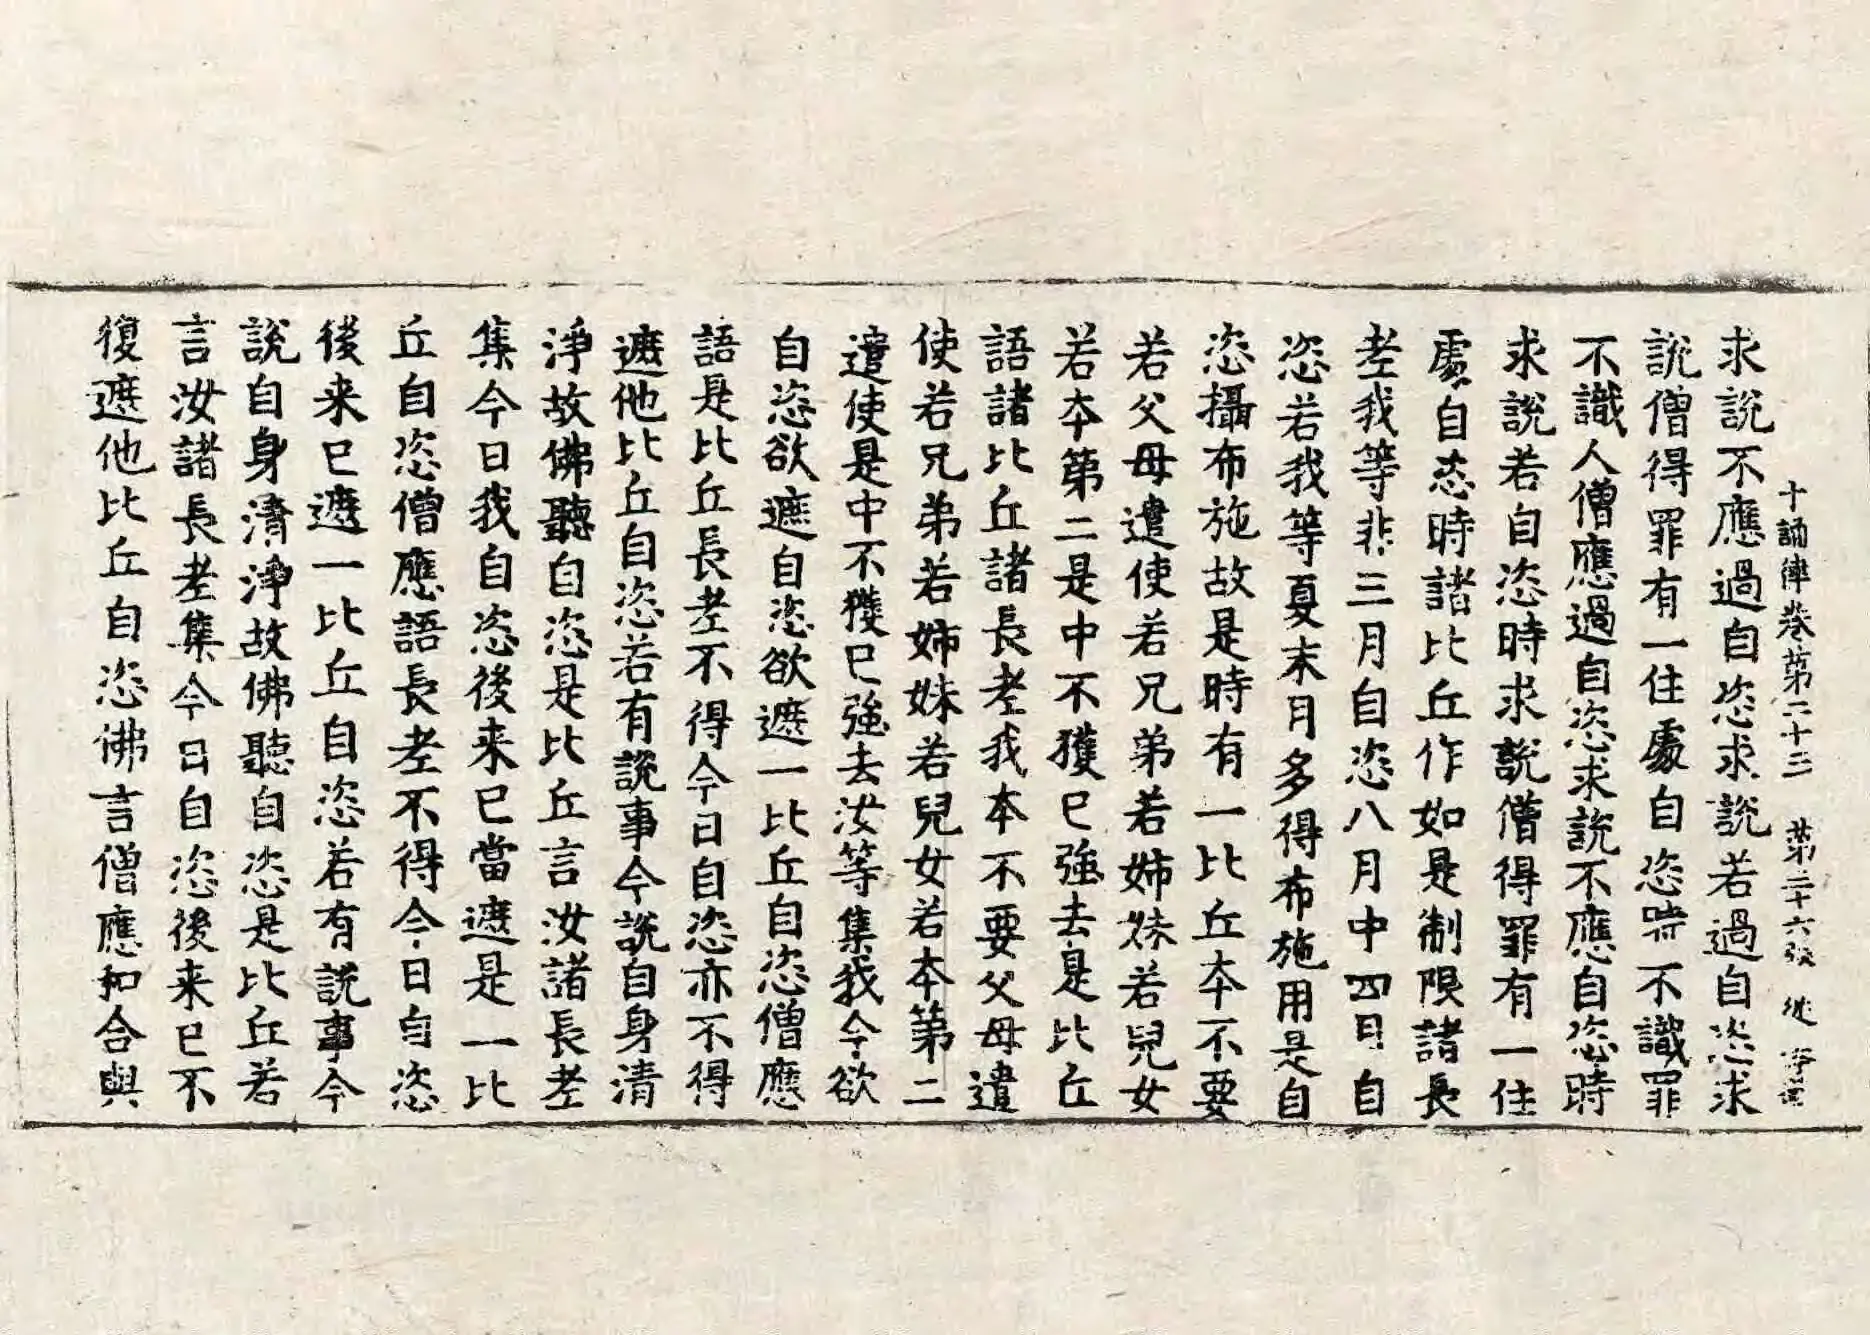 十誦律卷第二十三 第二十六張 從
求說不應過自恣求說若過自恣求
說僧得罪有一住處自恣時不識罪
不識人僧應過自恣求說不應自恣時
求說若自恣時求說僧得罪有一住
處自恣時諸比丘作如是制限諸長
老我等非三月自恣八月中四月自
恣若我等夏末月多得布施用是自
恣攝布施故是時有一比丘本不要
若父母遣使若兄弟若姉妹若兒女
若本第二是中不獲已強去是比丘
語諸比丘諸長老我本不要父母遣
使若兄弟若姉妹若兒女若本第二
遣使是中不獲已強去汝等集我今欲
自恣欲遮自恣欲遮一比丘自恣僧應
語是比丘長老不得今日自恣亦不得
遮他比丘自恣若有說事今說自身清
淨故佛聽自恣是比丘言汝諸長老
集今日我自恣後来已當遮是一比
丘自恣僧應語長老不得今日自恣
後来已遮一比丘自恣若有說事今
說自身清淨故佛聽自恣是比丘若
言汝諸長老集今日自恣後来已不
復遮他比丘自恣佛言僧應和合與